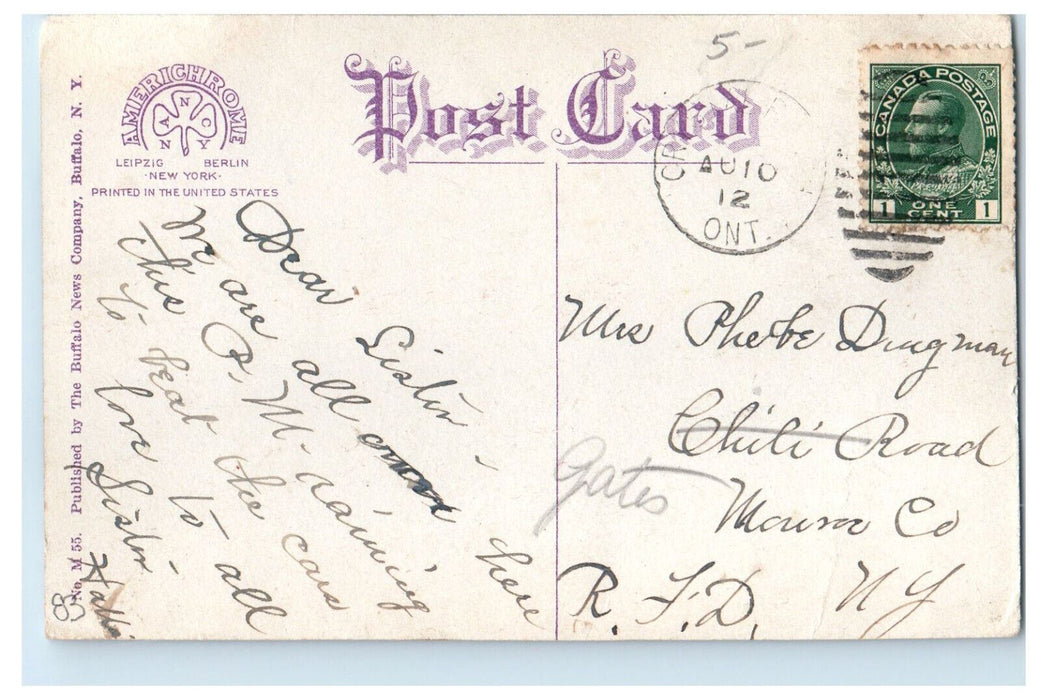 5-
AMERICHROME
A N C N Y
LEIPZIG BERLIN
· NEW YORK ·
PRINTED IN THE UNITED STATES
Post Card
AU 10
12
ONT.
CANADA POSTAGE
1 ONE CENT 1
No. M 55. Published by The Buffalo News Company, Buffalo, N. Y.
Dear Sister -
We are all here
this P. M. raining
to beat the cars
love to all
Sister
83
Mrs Phebe Dingman
Chili Road
Gates
Monroe Co
R. F. D. N Y